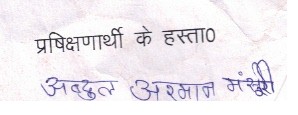 प्रषिक्षणार्थी के हस्ता०
अब्दुल अरमान मंसूरी